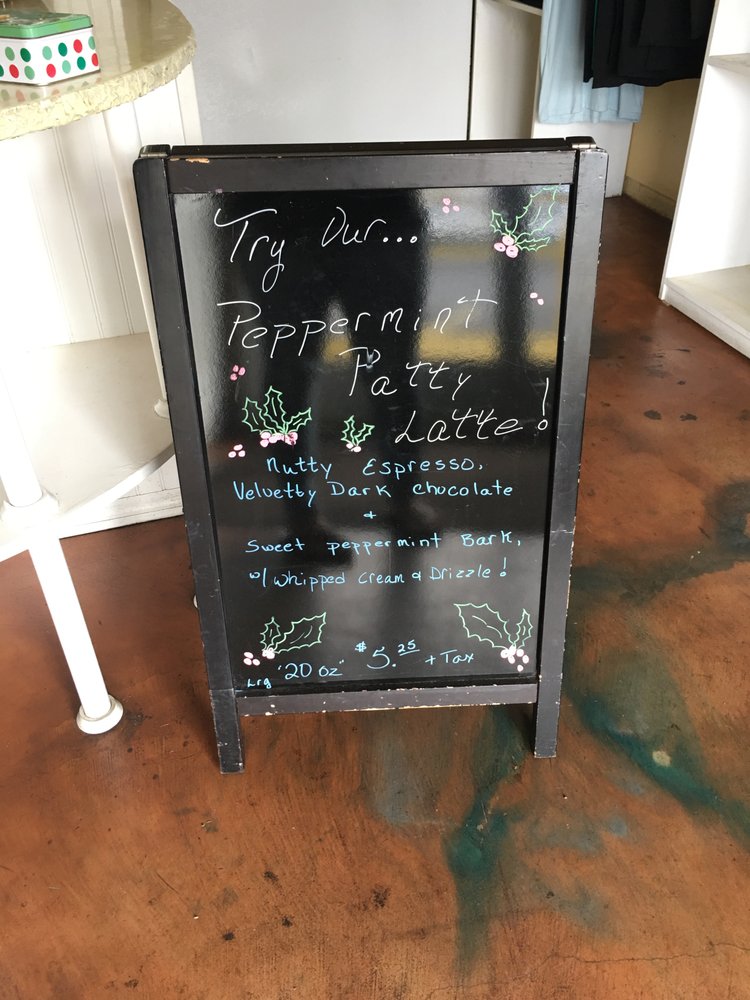 Try Our...
Peppermint
Patty
Latte!
Nutty Espresso,
Velvetty Dark Chocolate
+
Sweet peppermint Bark,
w/ whipped cream & Drizzle!
Lrg "20 oz" $5.25 + Tax